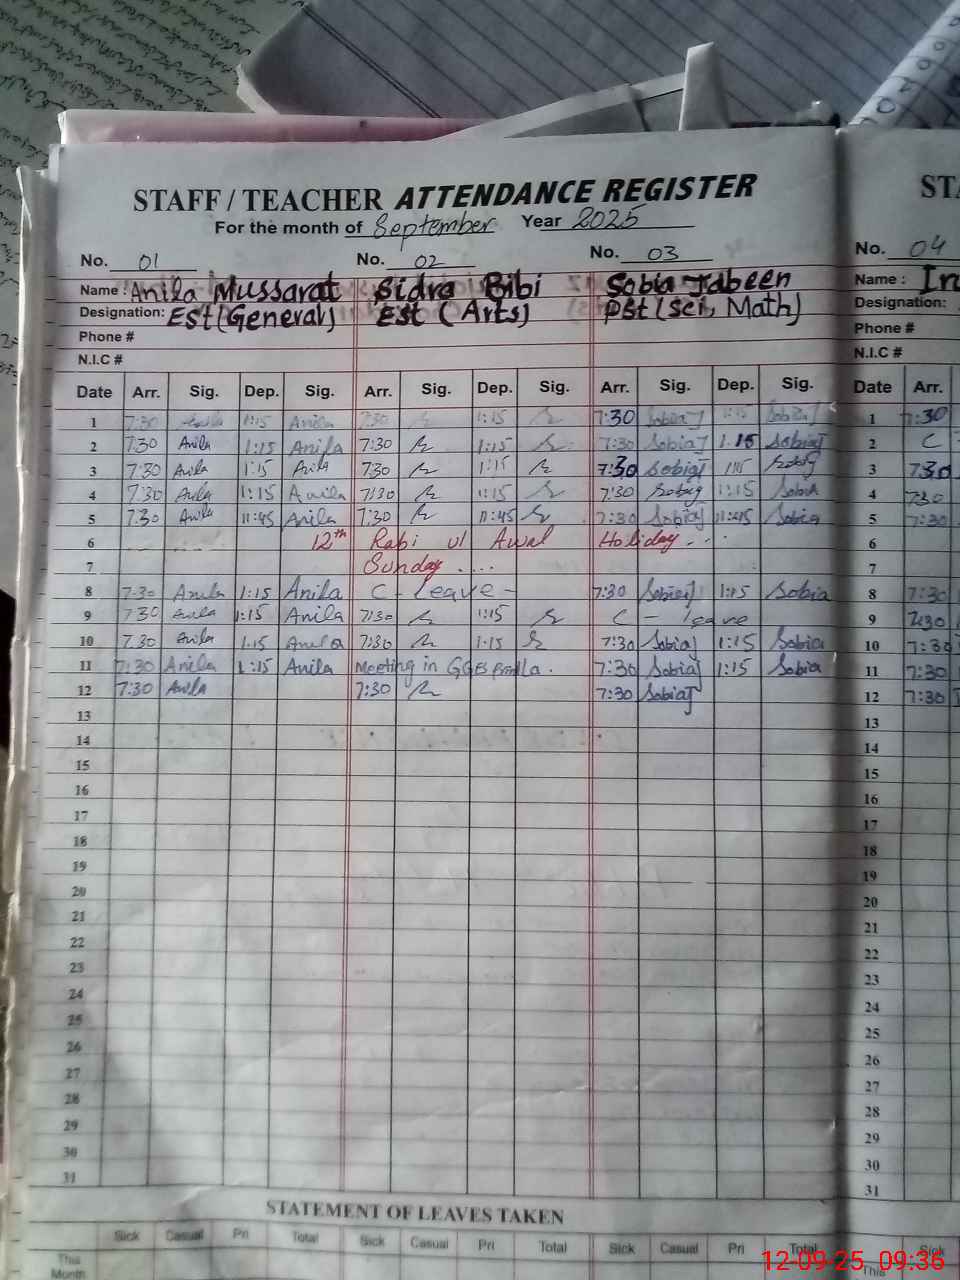 STAFF / TEACHER ATTENDANCE REGISTER ST
For the month of September Year 2025
No. 01 No. 02 No. 03 No. 04
Name : Anila Mussarat Sidra Bibi Sobia Jabeen Name : In
Designation: Est (General) Est (Arts) Pst (Sci, Math) Designation:
Phone # Phone #
N.I.C # N.I.C #
Date Arr. Sig. Dep. Sig. Arr. Sig. Dep. Sig. Arr. Sig. Dep. Sig. Date Arr.
1 7:30 Anila 1:15 Anila 7:30 1:15 7:30 SobiaJ 1:15 SobiaJ 1 7:30
2 7:30 Anila 1:15 Anila 7:30 1:15 7:30 SobiaJ 1.15 SobiaJ 2 C
3 7:30 Anila 1:15 Anila 7:30 1:15 7:30 SobiaJ 1:15 Sobia 3 7:30
4 7:30 Anila 1:15 Anila 7:30 1:15 7:30 Sobia 1:15 Sobia 4 7:30
5 7:30 Anila 11:45 Anila 7:30 11:45 7:30 SobiaJ 11:45 Sobia 5 7:30
6 12th Rabi ul Awal Holiday . . . 6
7 Sunday .... 7
8 7:30 Anila 1:15 Anila C - Leave - 7:30 SobiaJ 1:15 Sobia 8 7:30
9 7:30 Anila 1:15 Anila 7:30 1:15 C - leave 9 7:30
10 7.30 Anila 1.15 Anila 7:30 1:15 7:30 SobiaJ 1:15 Sobia 10 7:30
11 7:30 Anila 1:15 Anila Meeting in GGES . 7:30 SobiaJ 1:15 Sobia 11 7:30
12 7:30 Anila 7:30 7:30 SobiaJ 12 7:30
13 13
14 14
15 15
16 16
17 17
18 18
19 19
20 20
21 21
22 22
23 23
24 24
25 25
26 26
27 27
28 28
29 29
30 30
31 31
STATEMENT OF LEAVES TAKEN
Sick Casual Pri Total Sick Casual Pri Total Sick Casual Pri Total Sick
This Month This
12-09-25 09:36